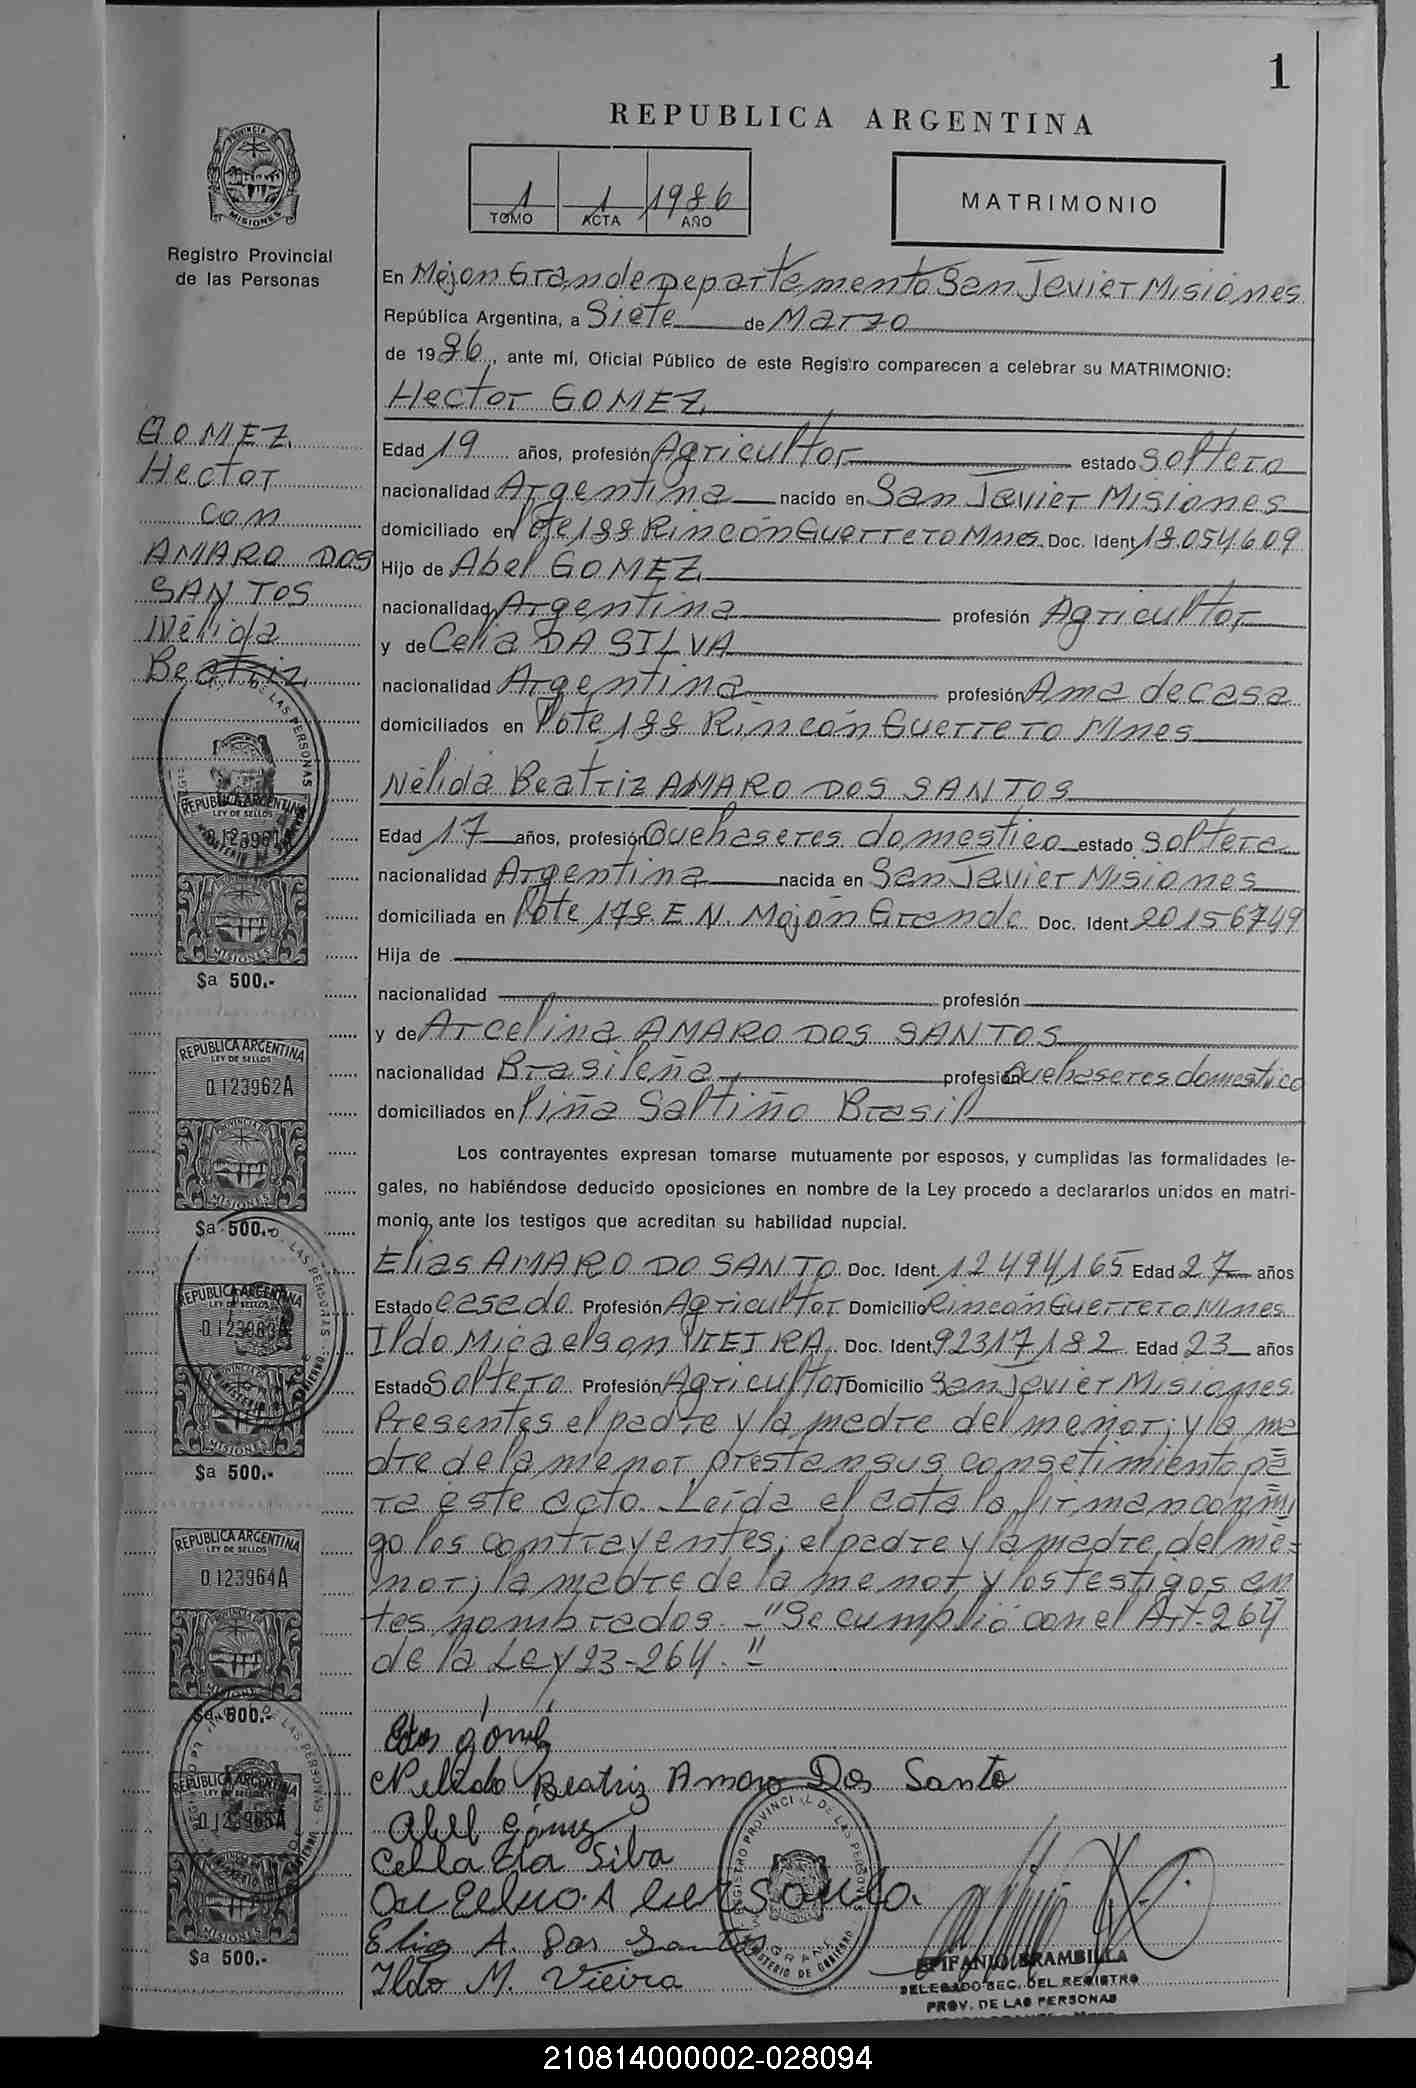 1
REPUBLICA ARGENTINA
1 1 1986
TOMO ACTA AÑO
MATRIMONIO
MISIONES
Registro Provincial
de las Personas
GOMEZ
Hector
con
AMARO DOS
SANTOS
Nélida
Beatriz
En Mojon Grande Departamento San Javier Misiones
República Argentina, a Siete de Marzo
de 1986, ante mí, Oficial Público de este Registro comparecen a celebrar su MATRIMONIO:
Hector GOMEZ
Edad 19 años, profesión Agricultor estado Soltero
nacionalidad Argentina nacido en San Javier Misiones
domiciliado en lote 188 Rincón Guerrero Mnes. Doc. Ident 18054609
Hijo de Abel GOMEZ
nacionalidad Argentina profesión Agricultor
y de Celia DA SILVA
nacionalidad Argentina profesión Ama de casa
domiciliados en lote 188 Rincón Guerrero Mnes
Nélida Beatriz AMARO DOS SANTOS
Edad 17 años, profesión Quehaseres domestico estado Soltera
nacionalidad Argentina nacida en San Javier Misiones
domiciliada en lote 178 E.N. Mojón Grande Doc. Ident 20156749
Hija de
nacionalidad profesión
y de Arcelina AMARO DOS SANTOS
nacionalidad Brasileña profesión Quehaseres domestico
domiciliados en liña Saltiño Brasil
Los contrayentes expresan tomarse mutuamente por esposos, y cumplidas las formalidades le-
gales, no habiéndose deducido oposiciones en nombre de la Ley procedo a declararlos unidos en matri-
monio, ante los testigos que acreditan su habilidad nupcial.
Elias AMARO DO SANTO Doc. Ident. 12494165 Edad 27 años
Estado casado Profesión Agricultor Domicilio Rincón Guerrero Mnes
Ildo Micaelson VIEIRA Doc. Ident. 92317182 Edad 23 años
Estado Soltero Profesión Agricultor Domicilio San Javier Misiones
Presentes el padre y la madre del menor; y la ma
dre de la menor prestan sus consetimiento pa
ra este acto. Leída el acta la firman conmi
go los contrayentes; el padre y la madre del me=
nor; la madre de la menor y los testigos an
tes nombrados. -"Se cumplió con el Art. 264
de la Ley 23-264."
Gómez
Nelida Beatriz Amaro Dos Santo
Abel Gómez
Celia Da Silva
Elias A. Dos Santos
Ildo M. Vieira
EPIFANIO BRAMBILLA
DELEGADO SEC. DEL REGISTRO
PROV. DE LAS PERSONAS
REGISTRO PROVINCIAL DE LAS PERSONAS
MINISTERIO DE GOBIERNO
REPUBLICA ARGENTINA
LEY DE SELLOS
MISIONES
$a 500.-
REPUBLICA ARGENTINA
LEY DE SELLOS
0.123962A
$a 500.-
REPUBLICA ARGENTINA
LEY DE SELLOS
0.123963A
MISIONES
$a 500.-
REPUBLICA ARGENTINA
LEY DE SELLOS
0.123964A
$a 500.-
REPUBLICA ARGENTINA
0.123965A
$a 500.-
210814000002-028094